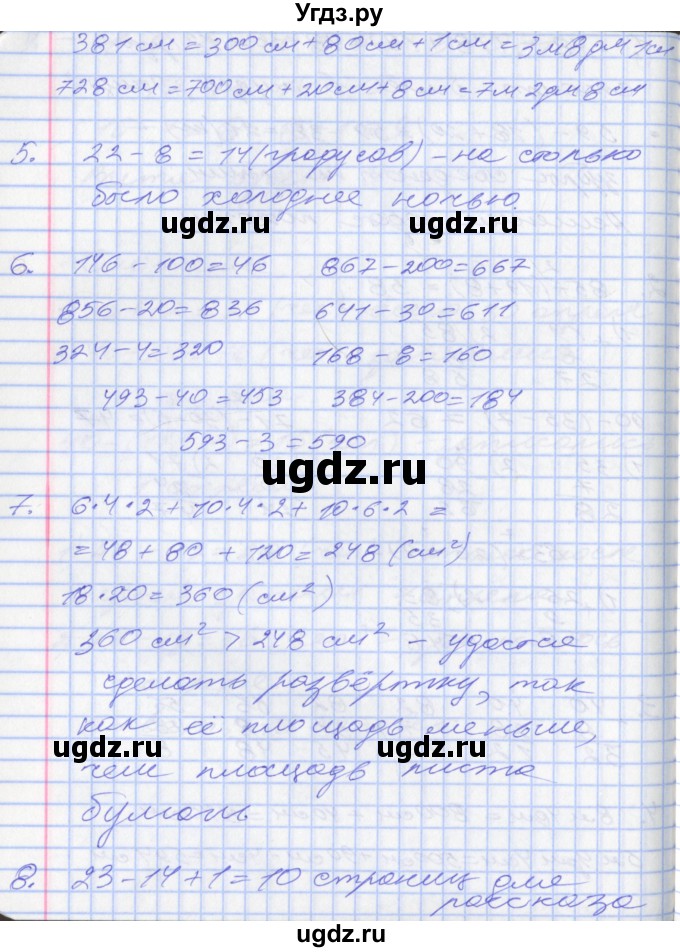 Угдз.ру
381 см = 300 см + 80 см + 1 см = 3 м 8 дм 1 см
728 см = 700 см + 20 см + 8 см = 7 м 2 дм 8 см
5. 22 - 8 = 14 (градусов) - на столько
было холоднее ночью.
ugdz.ru ugdz.ru
6. 146 - 100 = 46 867 - 200 = 667
856 - 20 = 836 641 - 30 = 611
324 - 4 = 320 168 - 8 = 160
493 - 40 = 453 384 - 200 = 184
593 - 3 = 590
ugdz.ru
7. 6·4·2 + 10·4·2 + 10·6·2 =
= 48 + 80 + 120 = 248 (см²)
18·20 = 360 (см²)
360 см² > 248 см² - удастся
сделать развёртку, так
как её площадь меньше,
ugdz.ru ugdz.ru
чем площадь листа
бумаги
8. 23 - 14 + 1 = 10 страниц для
рассказа
ugdz.ru